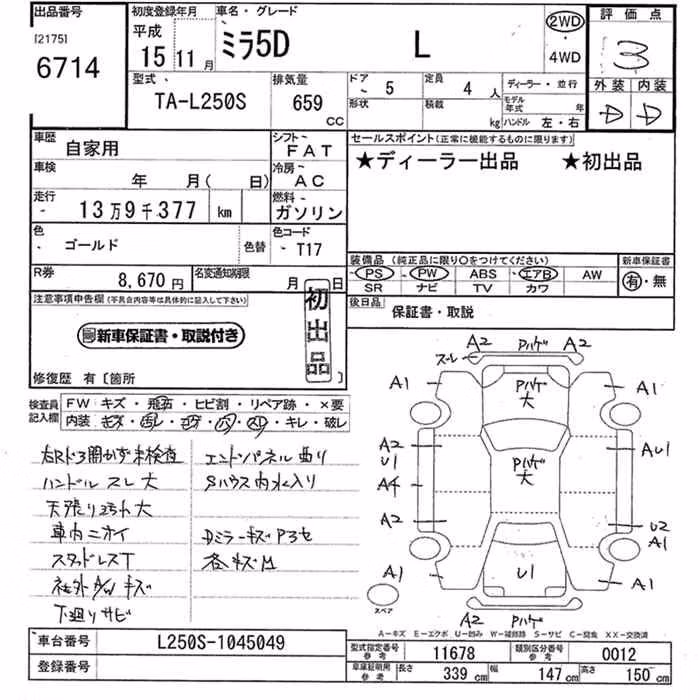 出品番号 初度登録年月 車名・グレード 評価点
[2175] 平成 2WD
6714 15年11月 ミラ5D L 4WD 3
型式 排気量 ドア 5 定員 4人 ディーラー・並行 外装 内装
TA-L250S 659 CC 形状 積載 kg モデル年式 年 D D
ハンドル 左・右
車歴 自家用 シフト FAT セールスポイント(正常に機能するものに限ります)
車検 年 月( 日) 冷房 AC ★ディーラー出品 ★初出品
走行 13万9千377 km 燃料 ガソリン
色 ゴールド 色替 色コード T17
装備品(純正品に限り○をつけてください) 新車保証書
PS PW ABS エアB AW 有・無
SR ナビ TV カワ
R券 8,670円 名変通知期限 月 日
後日品 保証書・取説
注意事項申告欄(不具合内容等は具体的に記入して下さい) 初出品
新車保証書・取説付き
修復歴 有〔箇所
検査員記入欄 FW キズ・飛石・ヒビ割・リペア跡・×要
内装 キズ・ヨゴレ・コゲ・穴・スレ・キレ・破レ
右Rドア開かず未検査 エンドパネル曲り
ハンドル スレ 大 Sハウス内水入り
天張り汚れ大
車内ニオイ Dミラーキズ
スタッドレスT 各キズM
社外A/W キズ
下廻りサビ
A2 Pハゲ A2
スレ
A1 Pハゲ 大 A1
A2
U1 Pハゲ 大 AU1
A4
A2 U2
A1
A1 U1 A1
スペア
A2 Pハゲ
A-キズ E-エクボ U-凹み W-補修跡 S-サビ C-腐食 XX-交換済
車台番号 L250S-1045049
登録番号
型式指定番号 参考 11678 類別区分番号 参考 0012
車庫証明用 参考 長さ 339 cm 幅 147 cm 高さ 150 cm